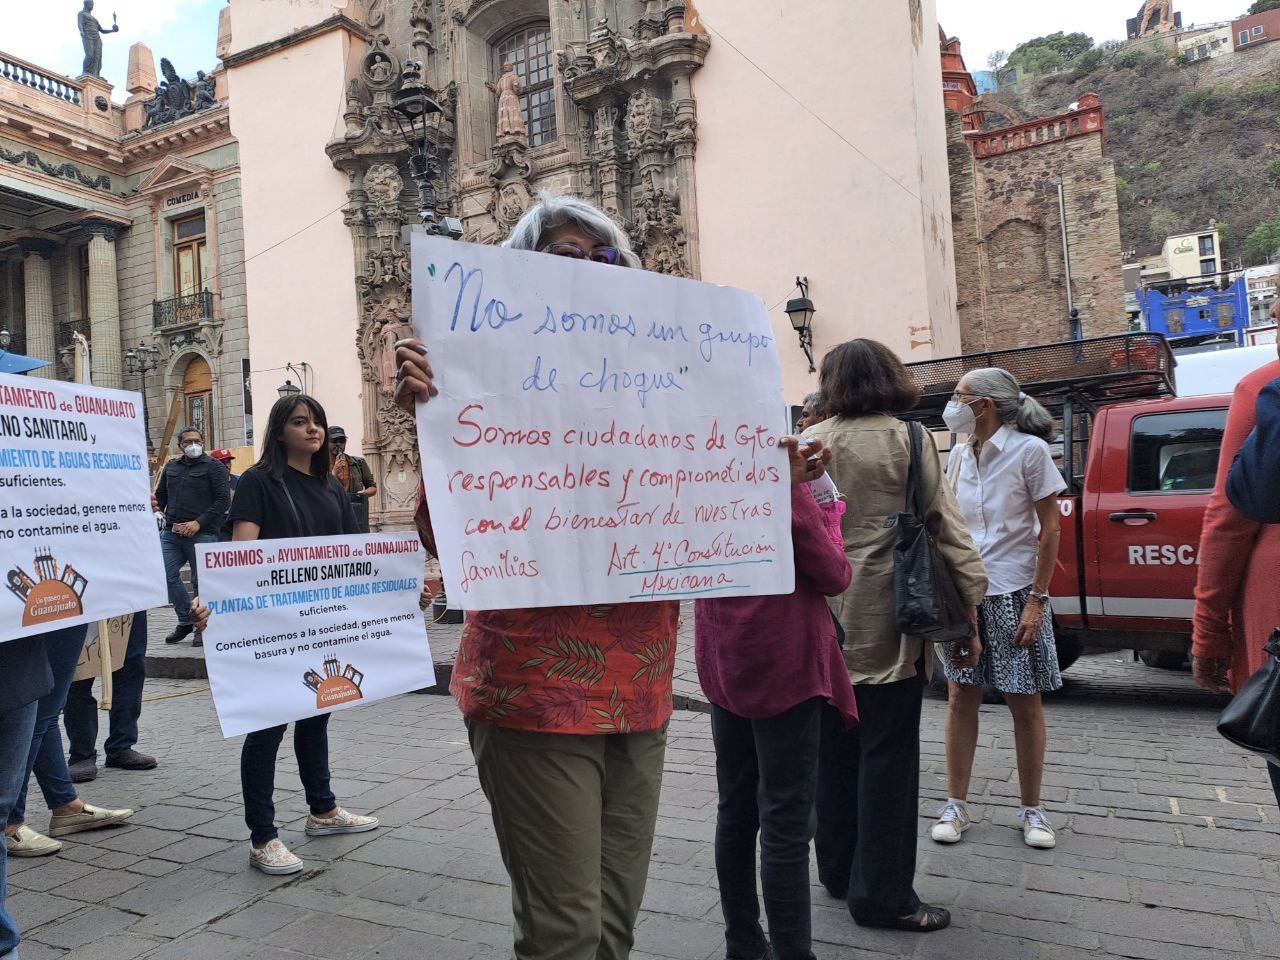 COMEDIA
"No somos un grupo
de choque"
Somos ciudadanos de Gto
responsables y comprometidos
con el bienestar de nuestras
familias Art. 4º Constitución
Mexicana
TAMIENTO de GUANAJUATO
ENO SANITARIO y
TAMIENTO DE AGUAS RESIDUALES
suficientes.
a la sociedad, genere menos
no contamine el agua.
Un paseo por
Guanajuato
EXIGIMOS al AYUNTAMIENTO de GUANAJUATO
un RELLENO SANITARIO y
PLANTAS DE TRATAMIENTO DE AGUAS RESIDUALES
suficientes.
Concienticemos a la sociedad, genere menos
basura y no contamine el agua.
Un paseo por
Guanajuato
RESCA